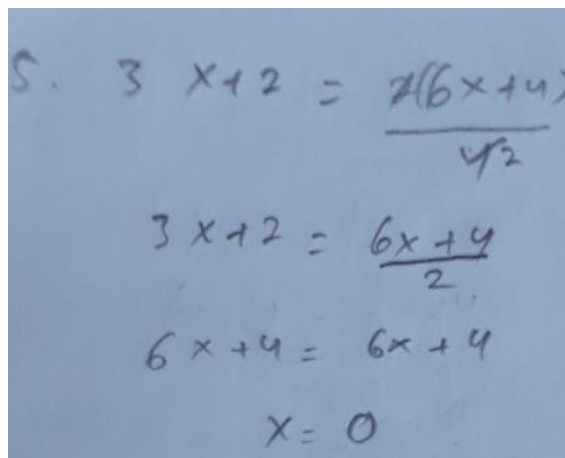 5. 3 x+2 = 2(6x+4)/4̶2
3x+2 = 6x+4/2
6x+4 = 6x+4
x = 0